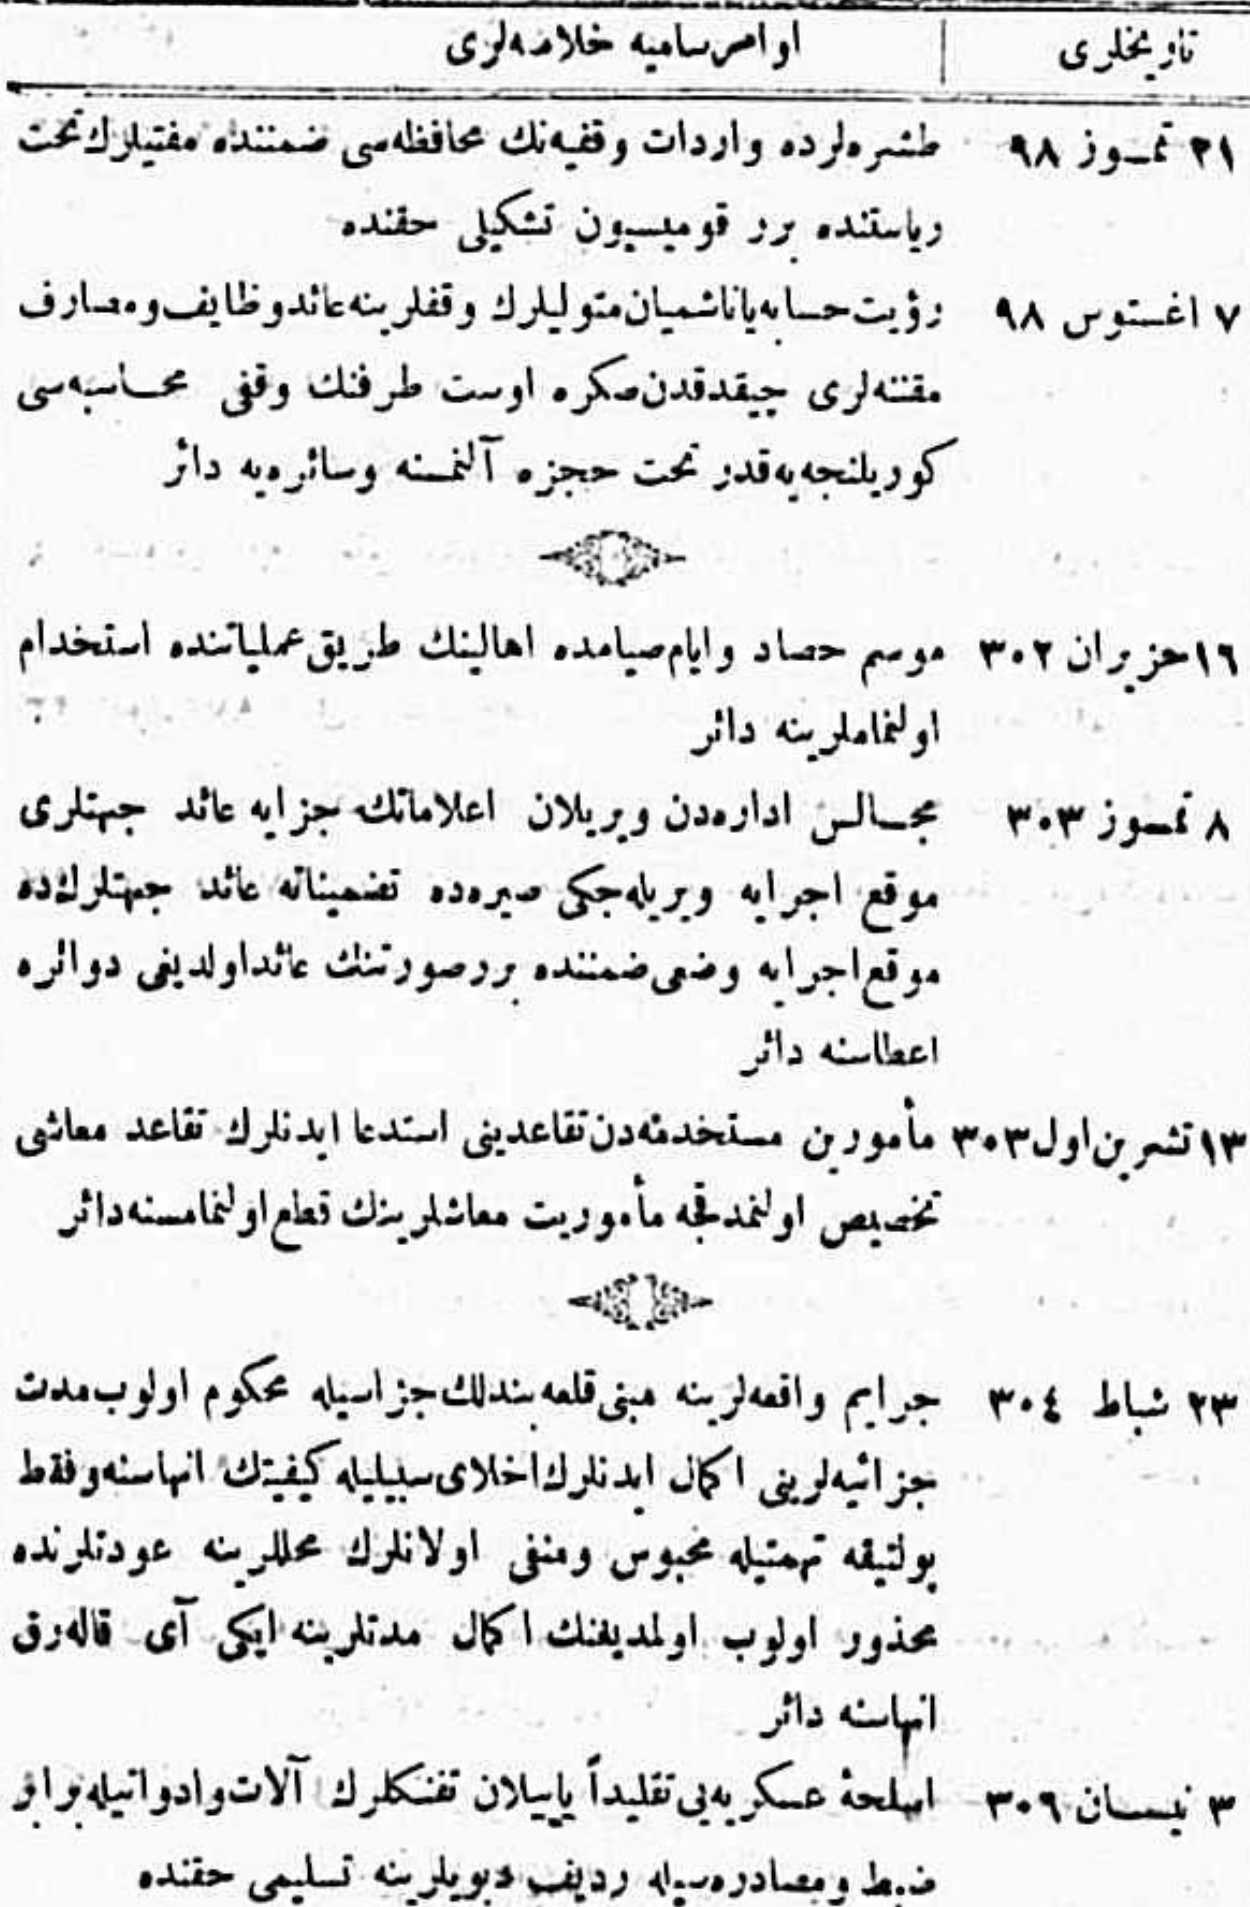 تاريخلرى | اوامر ساميه خلاصه‌لرى
٢١ تمـوز ٩٨ طشره‌لرده واردات وقفيه‌نك محافظه‌سى ضمننده مفتيلرك تحت
رياستنده برر قوميسيون تشكيلى حقنده
٧ اغستوس ٩٨ رؤيت حسابه ياناشميان متوليلرك وقفلرينه عائد وظايف ومصارف
مقننه‌لرى چيقدقدن صكره اوست طرفنك وقفى محاسبه‌سى
كوريلنجه‌يه قدر تحت حجزه آلنمسنه وسائره‌يه دائر
١٦ حزيران ٣٠٢ موسم حصاد وايام صيامده اهالينك طريق عملياتنده استخدام
اولنماملرينه دائر
٨ تمـوز ٣٠٣ مجـالس اداره‌دن ويريلان اعلاماتك جزايه عائد جهتلرى
موقع اجرايه ويريله‌جكى صيره‌ده تضميناته عائد جهتلرك‌ده
موقع اجرايه وضعى ضمننده برر صورتنك عائد اولديغى دوائره
اعطاسنه دائر
١٣ تشرين اول ٣٠٣ مأمورين مستخدمه‌دن تقاعدينى استدعا ايدنلرك تقاعد معاشى
تخصيص اولنمدقجه مأموريت معاشلرينك قطع اولنمامسنه دائر
٢٣ شباط ٣٠٤ جرايم واقعه‌لرينه مبنى قلعه بندلك جزاسيله محكوم اولوب مدت
جزائيه‌لرينى اكمال ايدنلرك اخلاى سبيليله كيفيتك انهاسنه وفقط
پولتيقه تهمتيله محبوس ومنفى اولانلرك محللرينه عودتلرنده
محذور اولوب اولمديغنك اكمال مدتلرينه ايكى آى قاله‌رق
انهاسنه دائر
٣ نيسـان ٣٠٦ اسلحۀ عسكريه‌يى تقليداً ياپيلان تفنكلرك آلات وادواتيله برابر
ضبط ومصادره‌سيله رديف دپويلرينه تسليمى حقنده